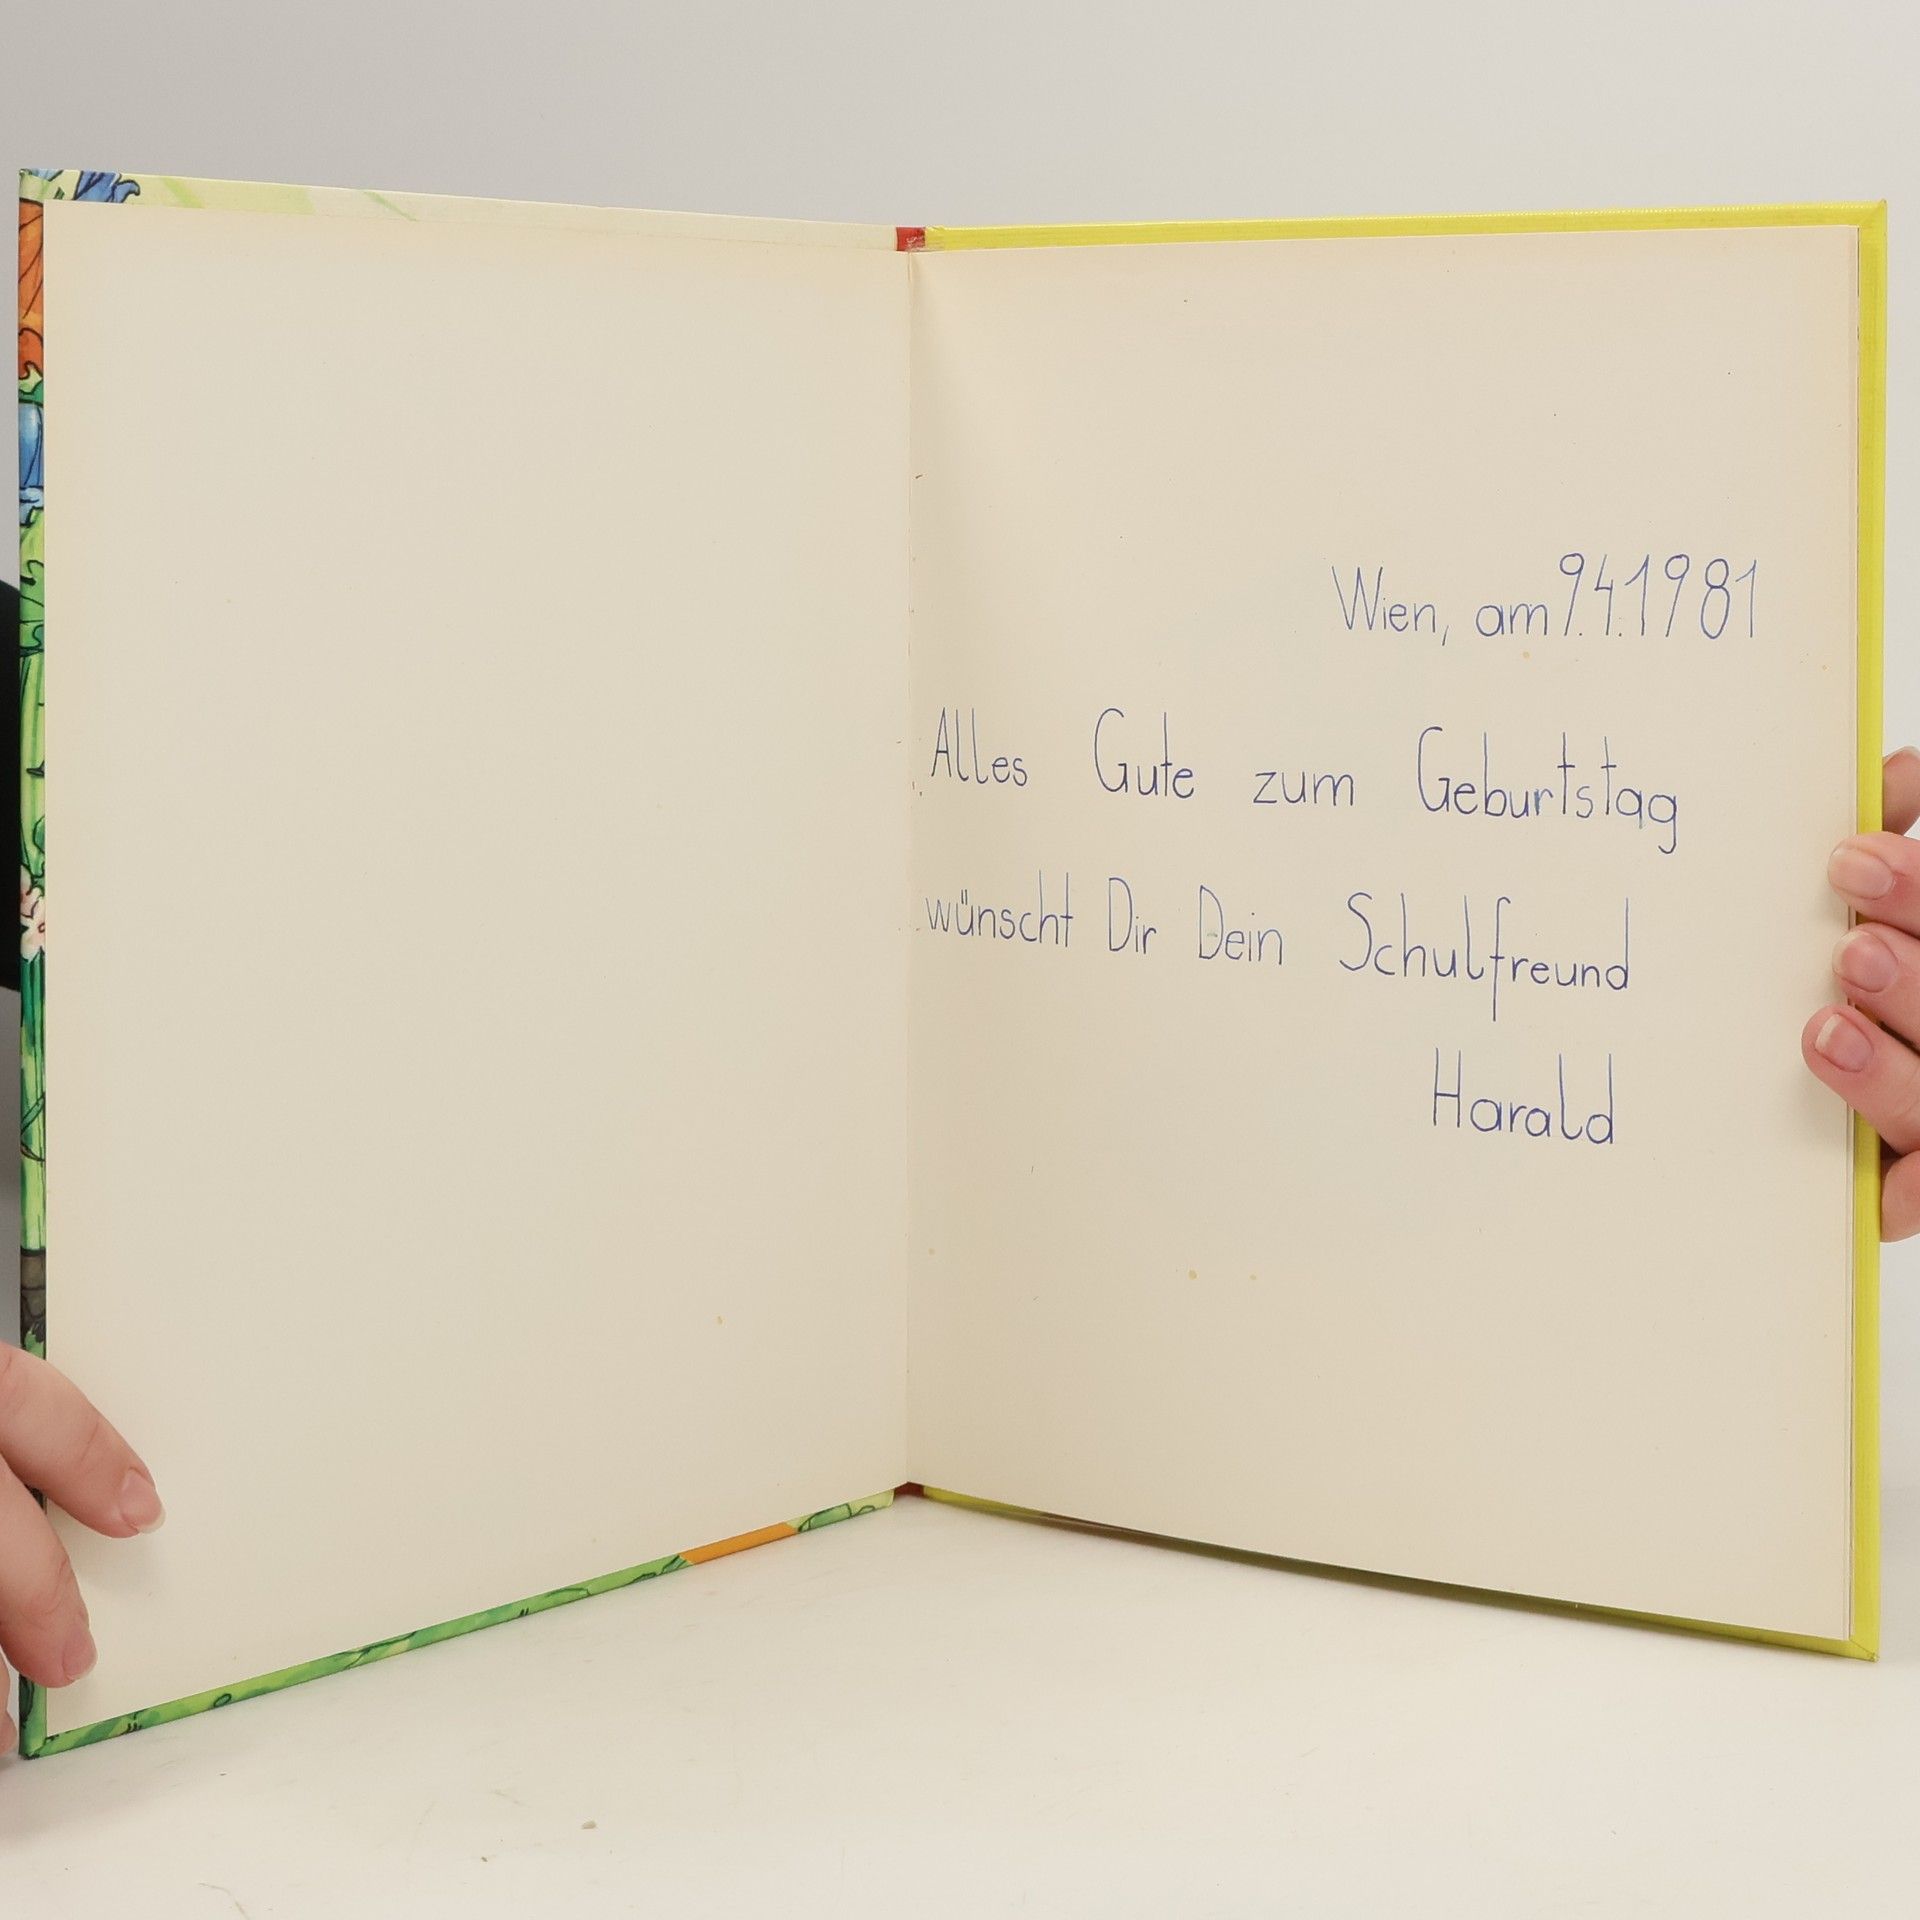 Wien, am 9.4.1981
Alles Gute zum Geburtstag
wünscht Dir Dein Schulfreund
Harald